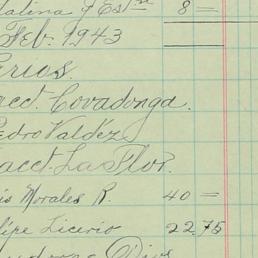 alina y Est 8 =
Feb. 1943
erios.
acct. Covadonga.
edro Valdez
acct. La Flor.
is Morales R. 40 =
lipe Licerio 22.75